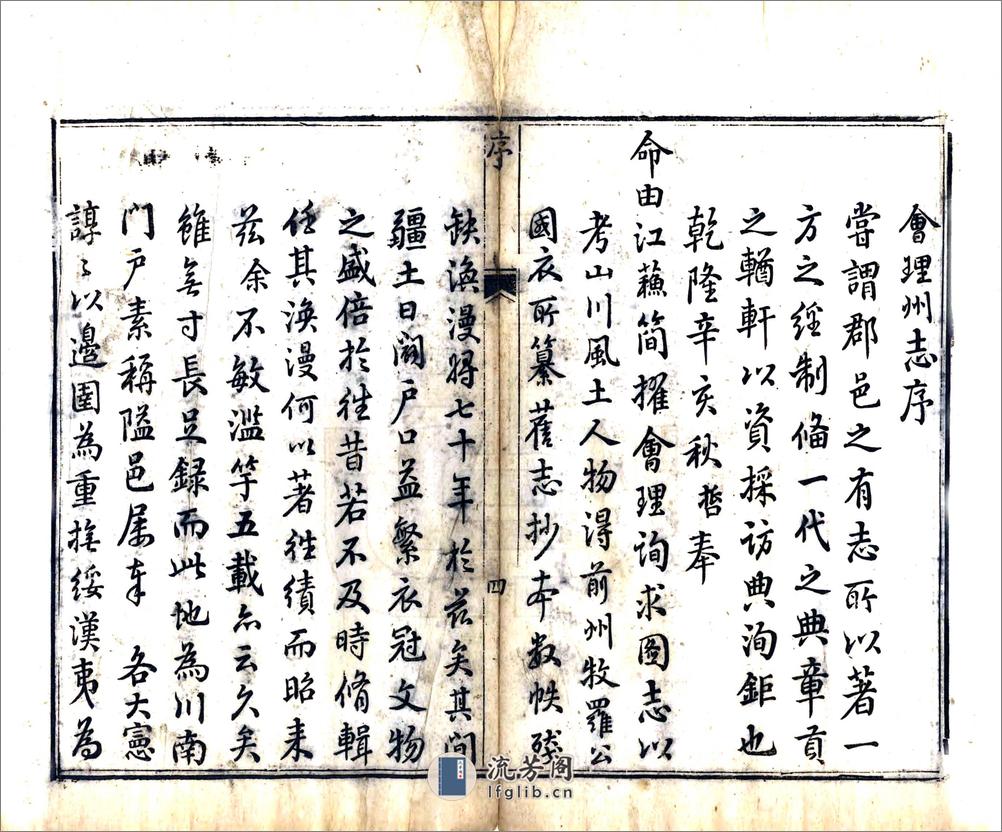 會理州志序
嘗謂郡邑之有志所以著一
方之經制俻一代之典章貢
之輶軒以資採訪典洵鉅也
乾隆辛亥秋哲奉
命由江蘓簡擢會理詢求圖志以
考山川風土人物淂前州牧羅公
國衣所纂舊志抄本数帙殘
序
四
缺漶漫將七十年於茲矣其間
疆土日闢戶口益繁衣冠文物
之盛倍於徃昔若不及時脩輯
任其漶漫何以著徃績而昭来
茲余不敏濫竽五載亦云久矣
雖無寸長足録而此地為川南
門戶素稱隘邑屡奉 各大憲
諄〻以邊圉為重撫綏漢夷為
流芳阁
lfglib.cn